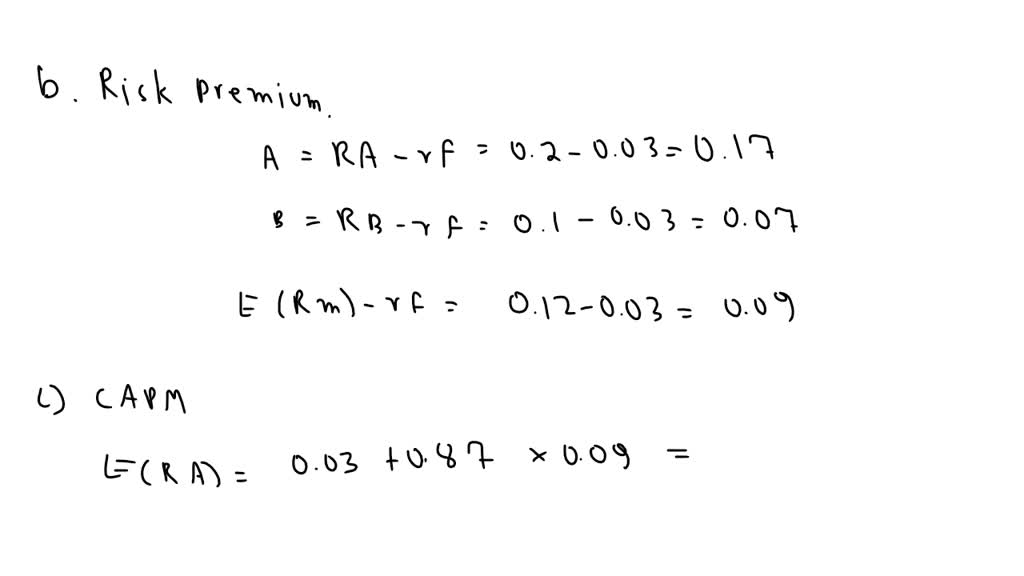 b. Risk Premium.
A = RA - rf = 0.2 - 0.03 = 0.17
B = RB - rf = 0.1 - 0.03 = 0.07
E (Rm) - rf = 0.12 - 0.03 = 0.09
c) CAPM
E(RA) = 0.03 + 0.87 × 0.09 =